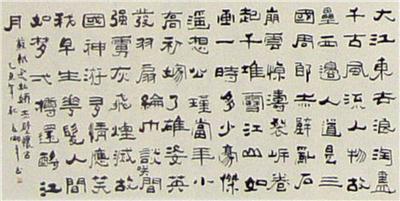 大江東去浪淘盡
千古風流人物故
壘西邊人道是三
國周郎赤壁亂石
崩雲驚濤裂岸卷
起千堆雪江山如
畫一時多少豪傑
遙想公瑾當年小
喬初嫁了雄姿英
發羽扇綸巾談笑間
強虜灰飛煙滅故
國神游多情應笑
我早生華髮人間
如夢一樽還酹江
月
蘇軾念奴嬌赤壁懷古